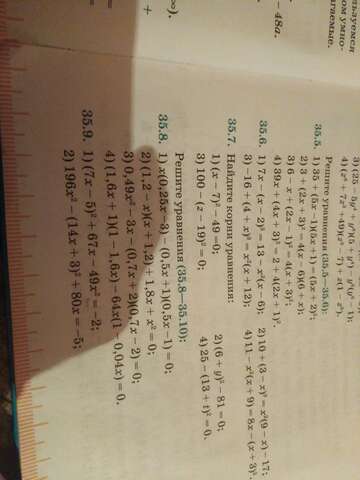 льзуемся
ом умно-
агаемые.
– 48a.
∞).
+
=
3) (25 – 5y²
Решите уравнения (35.5—35.6):
35.5. 1) 35 + (5x – 1)(5x + 1) = (5x + 2)²;
2) 3 + (2x + 3)² = 4(x – 6)(6 + x);
3) 6 – x + (2x – 1)² = 4(x + 3)²;
4) 39x + (4x + 3)² = 2 + 4(2x – 1)².
35.6. 1) 7x – (x – 2)³ = 13 – x²(x – 6); 2) 16 + (3 – x)³ = x²(9 – x) – 17;
3) –16 + (4 + x)³ = x²(x + 12); 4) 11 – x²(x + 9) = 8x – (x + 3)³.
35.7. Найдите корни уравнения:
1) (x – 7)² – 49 = 0; 2) (6 + y)² – 81 = 0;
3) 100 – (z – 19)² = 0; 4) 25 – (13 + t)² = 0.
Решите уравнения (35.8—35.10):
35.8. 1) x(0,25x – 3) – (0,5x + 1)(0,5x – 1) = 0;
2) (1,2 – x)(x + 1,2) + 1,8x + x² = 0;
3) 0,49x² – 3x – (0,7x + 2)(0,7x – 2) = 0;
4) (1,6x + 1)(1 – 1,6x) – 64x(1 – 0,04x) = 0.
35.9. 1) (7x – 5)² + 67x – 49x² = –2;
2) 196x² – (14x + 3)² + 80x = –5;